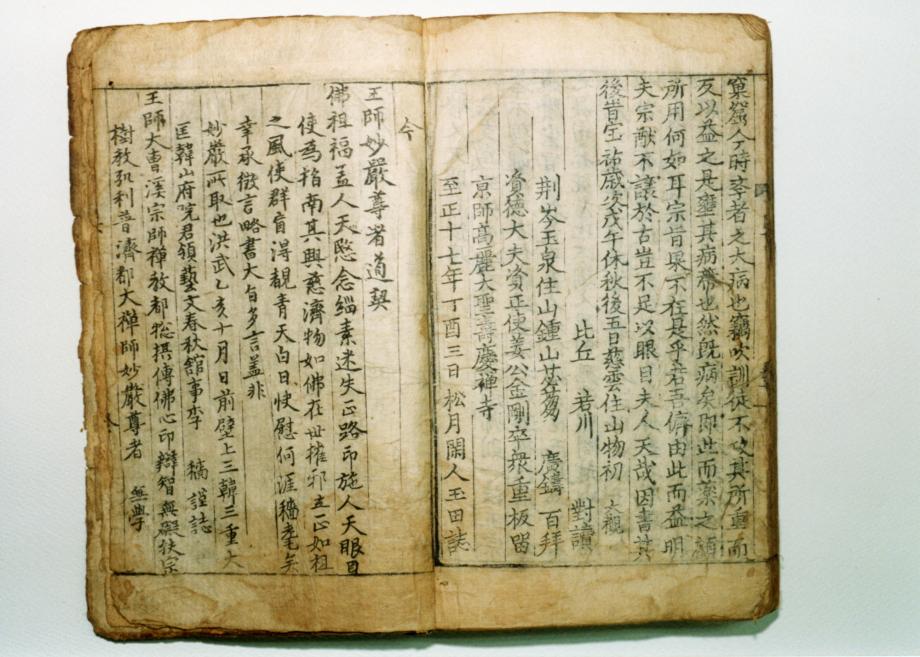 窠窟今時李者之大病也竊吹訓徒不攻其所重而
反以益之是壅其病帶也然旣病矣即此而藥之顧
所用何如耳宗旨果不在是乎若吾儕由此而益明
夫宗猷不讓於古豈不足以眼目夫人天哉因書其
後昔宝祐歲次戊午休秋後五日慈雲住山物初 大觀
比丘 若川 對讀
荆岑玉泉住山鍾山苾蒭 廣鑄 百拜
資德大夫資正使姜公金剛卒衆重板留
京師高麗大聖壽慶禅寺
至正十七年丁酉三日 松月閑人玉田誌
王師妙嚴尊者道契
佛祖福盖人天愍念緇素迷失正路印施人天眼目
使爲指南其興慈濟物如佛在世摧邪立正如祖
之風使群盲淂覩青天白日快慰何涯穡耄矣
幸承徵言略書大旨多言盖非
妙嚴所取也洪武乙亥十月日前壁上三韓三重大
匡韓山府院君領藝文春秋舘事李 穡 謹誌
王師大曹溪宗師禅教都捴摂傳佛心印辯智無㝵扶宗
樹教弘利普濟都大禅師妙嚴尊者 無學